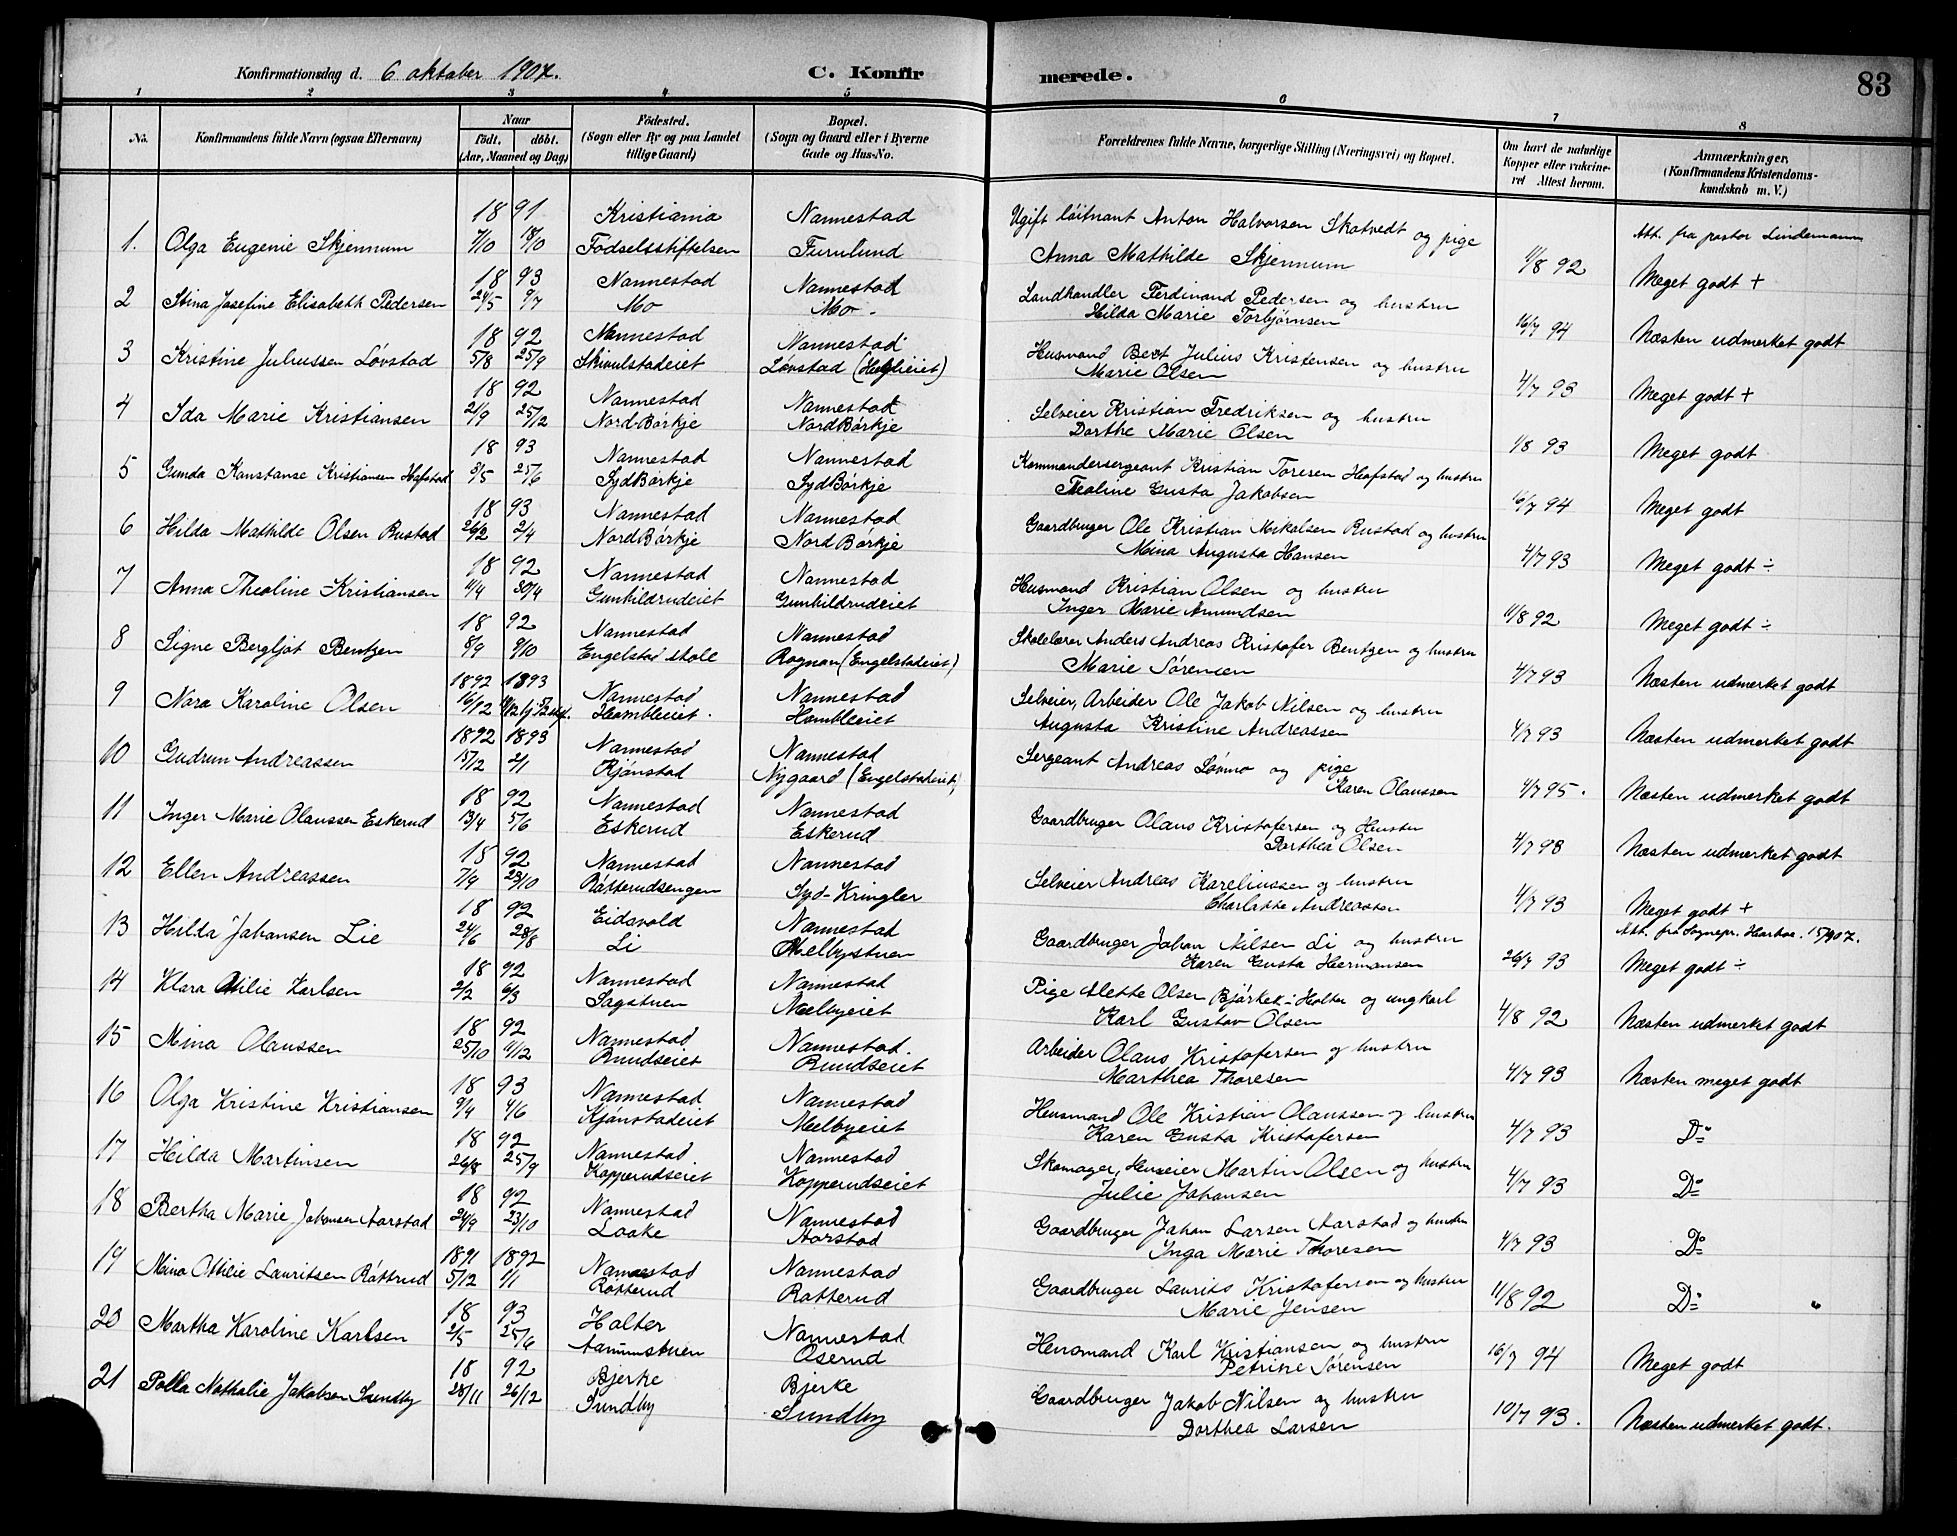 Konfirmationsdag d. 6 oktober 1907. C. Konfirmerede. 83
1 2 3 4 5 6 7 8
No. Konfirmandens fulde Navn (ogsaa Efternavn) Naar født. døbt. (Aar, Maaned og Dag) Fødested. (Sogn eller By og paa Landet tillige Gaard) Bopæl. (Sogn og Gaard eller i Byerne Gade og Hus-No. Forældrenes fulde Navne, borgerlige Stilling (Næringsvei) og Bopæl. Om havt de naturlige Kopper eller vakcineret Attest herom. Anmærkninger, (Konfirmandens Kristendomskundskab m. V.)
18 91 Kristiania Nannestad Ugift löitnant Anton Halvorsen Skotvedt og pige Att. fra pastor Lindemann
1. Olga Eugenie Skjennum 7/10 18/10 Födselsstiftelsen Furulund Anna Mathilde Skjennum 4/8 92 Meget godt +
18 93 Nannestad Nannestad Landhandler Ferdinand Pedersen og hustru
2 Stina Josefine Elisabeth Pedersen 24/5 9/7 Mo Mo. Hilda Marie Torbjørnsen 16/7 94 Næsten udmerket godt
18 92 Nannestad Nannestad Husmand Bert Julius Kristensen og hustru
3 Kristine Juliussen Løvstad 5/8 25/9 Skivulstadeiet Løvstad Marie Olsen 4/7 93 Meget godt +
18 92 Nannestad Nannestad Selveier Kristian Fredriksen og hustru
4 Ida Marie Kristiansen 2/9 25/12 Nord-Børkje Nord Børkje Dorthe Marie Olsen 1/8 93 Meget godt
18 93 Nannestad Nannestad Kommandersergeant Kristian Toresen Hafstad og hustru
5 Gunda Konstanse Kristiansen Hafstad 3/5 25/6 Syd Børkje Syd Børkje Tholine Gusta Jakobsen 16/7 94 Meget godt
18 93 Nannestad Nannestad Gaardbruger Ole Kristian Mikalsen Rustad og hustru
6 Hilda Mathilde Olsen Rustad 26/2 2/4 Nord Børkje Nord Børkje Mina Augusta Hansen 4/7 93 Meget godt ÷
18 92 Nannestad Nannestad Husmand Kristian Olsen og hustru
7 Anna Theoline Kristiansen 11/4 30/4 Gunhildrudeiet Gunhildrudeiet Inger Marie Amundsen 11/8 92 Meget godt ÷
18 92 Nannestad Nannestad Skolelærer Anders Andreas Kristofer Bentzen og hustru
8 Signe Bergljot Bentzen 8/9 9/10 Engelstad skole Rognan (Engelstadeiet) Marie Sørensen 4/7 93 Næsten udmerket godt
1892 1893 Nannestad Nannestad Selveier, Arbeider Ole Jakob Nilsen og hustru
9 Nora Karoline Olsen 16/12 Hombleeiet Hombleeiet Augusta Kristine Andreassen 4/7 93 Næsten udmerket godt
1892 1893 Nannestad Nannestad Sergeant Andreas Lømo og pige
10 Gudrun Andreassen 15/12 2/1 Kjønstad Nygaard (Engelstadeiet) Karen Olaussen 4/7 95. Næsten udmerket godt
18 92 Nannestad Nannestad Gaardbruger Olaus Kristofersen og Hustru
11 Inger Marie Olaussen Eskerud 13/4 5/6 Eskerud Eskerud Dorthea Olsen 4/7 93 Næsten udmerket godt
18 92 Nannestad Nannestad Selveier Andreas Kareliussen og hustru
12 Ellen Andreassen 7/9 23/10 Røtterudsengen Syd-Kringler Charlotte Andreassen 4/7 93 Meget godt +
18 92 Eidsvold Nannestad Gaardbruger Johan Nilsen Li og hustru Att. fra Sognepr. 15/9 07.
13 Hilda Johansen Lie 24/6 28/8 Li Melbystuen Karen Gusta Hermansen 26/7 93 Meget godt ÷
18 92 Nannestad Nannestad Pige Alette Olsen Bjørkek i Holter og ungkarl
14 Klara Otilie Karlsen 2/2 6/3 Sagstuen Melbyeiet Karl Gustav Olsen 4/8 92 Næsten udmerket godt
18 92 Nannestad Nannestad. Arbeider Olaus Kristofersen og hustru
15 Mina Olaussen 25/10 11/12 Rundseiet Rundseiet Marthea Thoresen 4/7 93 Næsten meget godt
18 93 Nannestad Nannestad Husmand Ole Kristian Olaussen og hustru
16 Olga Kristine Kristiansen 9/4 4/6 Kjønstadeiet Melbyeiet Karen Gusta Kristofersen 4/7 93 Do
18 92 Nannestad Nannestad Skomager, Huseier Martin Olsen og hustru
17 Hilda Martinsen 26/8 25/9 Kopperudseiet Kopperudseiet Julie Johansen 4/7 93 Do
18 92 Nannestad Nannestad Gaardbruger Johan Larsen Aarstad og hustru
18 Bertha Marie Johansen Aarstad 24/9 23/10 Laake Aarstad Inga Marie Thoresen 4/7 93 Do
1891 1892 Nannestad Nannestad Gaardbruger Laurits Kristofersen og hustru
19 Mina Otilie Lauritsen Røtterud 5/12 1/1 Røtterud Røtterud Marie Jensen 11/8 92 Do
18 93 Holter Nannestad Husmand Karl Kristiansen og hustru
20 Martha Karoline Karlsen 2/5 25/6 Aamunstuen Oserud Petrine Sørensen 16/7 94 Meget godt
18 92 Bjerke Bjerke Gaardbruger Jakob Nilsen og hustru
21 Polla Nathalie Jakobsen Sundby 28/11 26/12 Sundby Sundby Dorthea Larsen 10/7 93. Næsten udmerket godt.